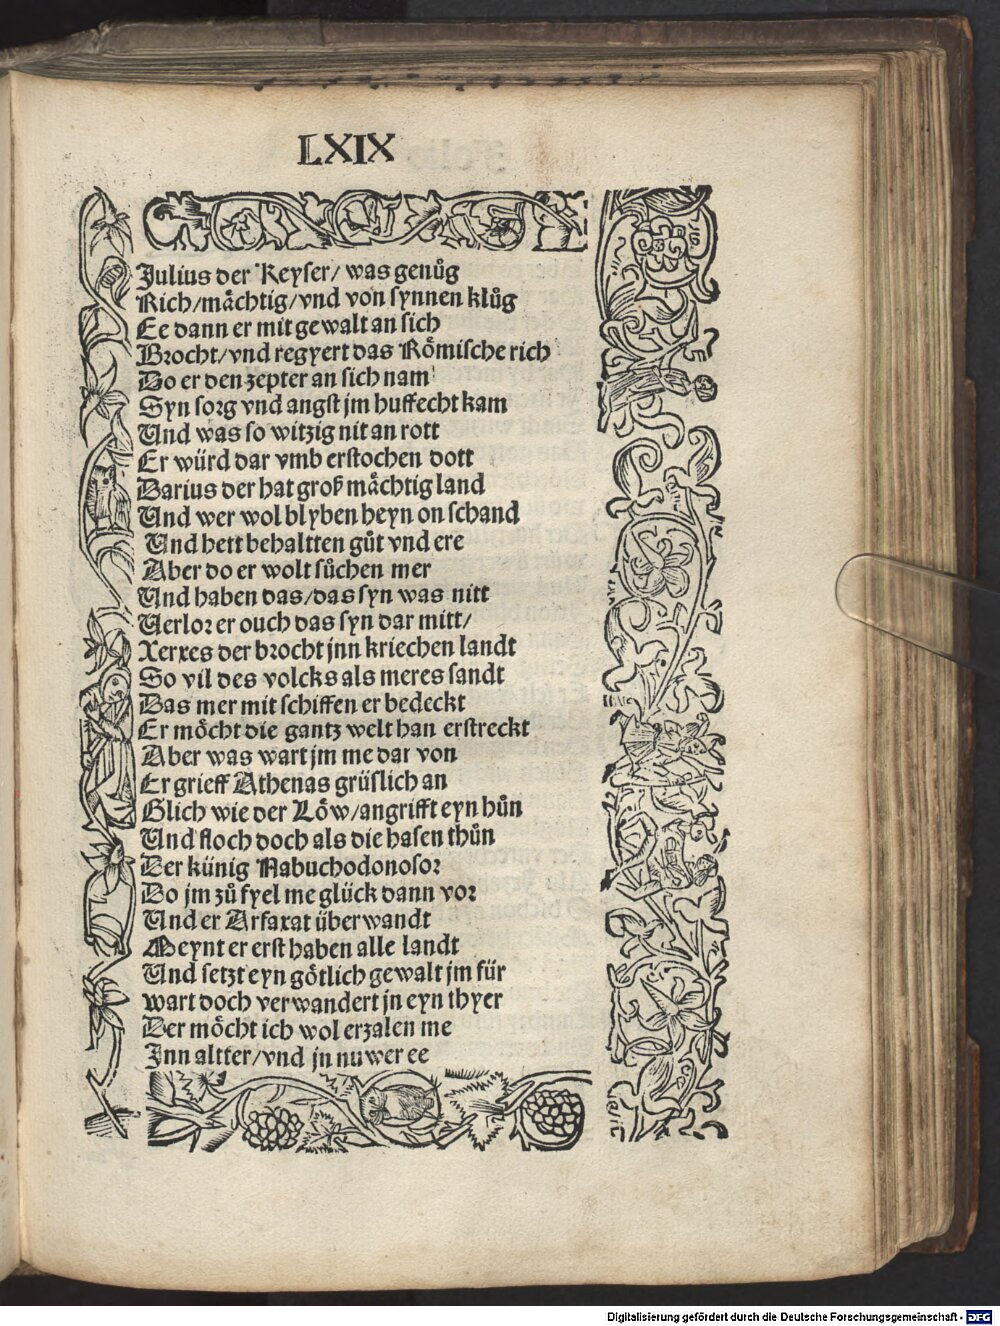 LXIX
Julius der Keyser/ was genůg
Rich/mächtig/vnd von synnen klůg
Ee dann er mit gewalt an sich
Brocht/vnd regyert das Römische rich
Do er den zepter an sich nam
Syn sorg vnd angst jm huffecht kam
Und was so witzig nit an rott
Er würd dar vmb erstochen dott
Darius der hat groß mächtig land
Und wer wol blyben heyn on schand
Und hett behaltten gůt vnd ere
Aber do er wolt sůchen mer
Und haben das/das syn was nitt
Verlor er ouch das syn dar mitt/
Xerxes der brocht jnn kriechen landt
So vil des volcks als meres sandt
Das mer mit schiffen er bedeckt
Er möcht die gantz welt han erstreckt
Aber was wart jm me dar von
Er grieff Athenas grüslich an
Glich wie der Löw/angrifft eyn hůn
Und floch doch als die hasen thůn
Der künig Nabuchodonosor
Do jm zů fyel me glück dann vor
Und er Arfaxat überwandt
Meynt er erst haben alle landt
Und setzt eyn götlich gewalt jm für
wart doch verwandert jn eyn thyer
Der möcht ich wol erzalen me
Jnn altter/vnd jn nuwer ee
Digitalisierung gefördert durch die Deutsche Forschungsgemeinschaft - DFG